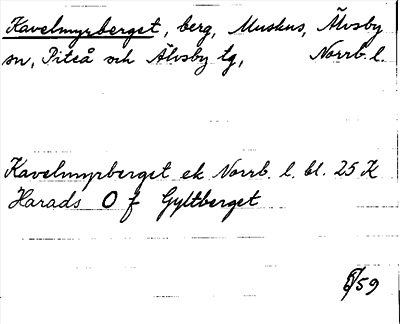 Kavelmyrberget, berg, Muskus, Älvsby
sn, Piteå och Älvsby tg, Norrb. l.
Kavelmyrberget ek Norrb. l. bl. 25 K
Harads O f Gyltberget
59